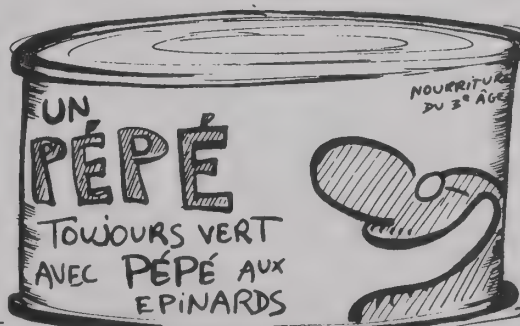 UN
PÉPÉ
TOUJOURS VERT
AVEC PÉPÉ AUX
EPINARDS
NOURRITURE
DU 3e ÂGE